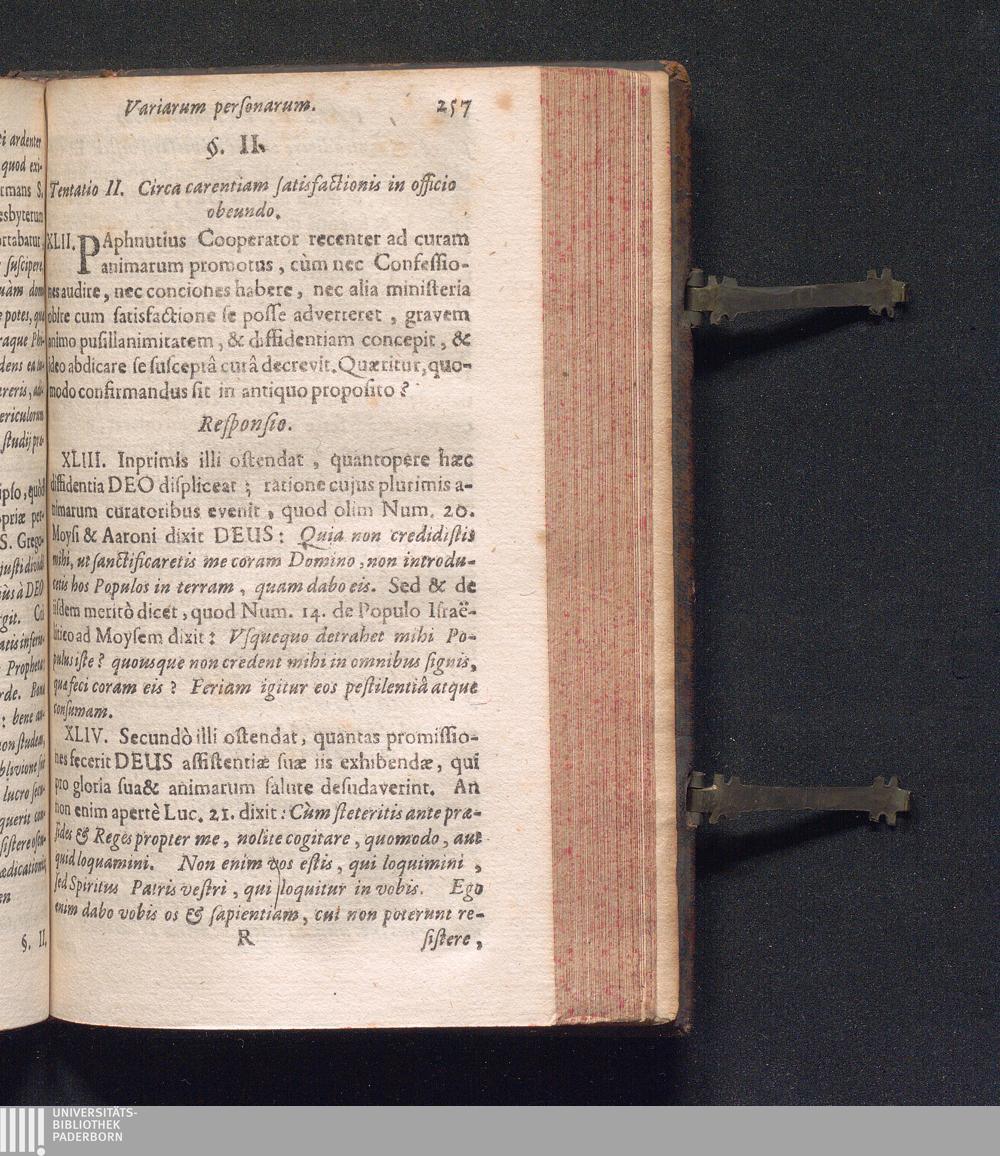 Variarum perſonarum. 257
§. II.
Tentatio II. Circa carentiam ſatisfactionis in officio
obeundo.
XLII. PAphnutius Cooperator recenter ad curam
animarum promotus, cùm nec Confeſſio-
nes audire, nec conciones habere, nec alia miniſteria
obire cum ſatisfactione ſe poſſe adverteret, gravem
animo puſillanimitatem, & diffidentiam concepit, &
ideo abdicare ſe ſuſceptâ curâ decrevit. Quæritur, quo-
modo confirmandus ſit in antiquo propoſito?
Reſponſio.
XLIII. Inprimis illi oſtendat, quantopere hæc
diffidentia DEO diſpliceat; ratione cujus plurimis a-
nimarum curatoribus evenit, quod olim Num. 20.
Moyſi & Aaroni dixit DEUS: Quia non credidiſtis
mihi, ut ſanctificaretis me coram Domino, non introdu-
cetis hos Populos in terram, quam dabo eis. Sed & de
iiſdem meritò dicet, quod Num. 14. de Populo Iſraë-
litico ad Moyſem dixit: Vſquequo detrahet mihi Po-
pulus iſte? quousque non credent mihi in omnibus ſignis,
quæ feci coram eis? Feriam igitur eos peſtilentiâ atque
conſumam.
XLIV. Secundò illi oſtendat, quantas promiſſio-
nes fecerit DEUS aſſiſtentiæ ſuæ iis exhibendæ, qui
pro gloria ſua & animarum ſalute deſudaverint. An
non enim apertè Luc. 21. dixit: Cùm ſteteritis ante præ-
ſides & Reges propter me, nolite cogitare, quomodo, aut
quid loquamini. Non enim vos eſtis, qui loquimini,
ſed Spiritus Patris veſtri, qui loquitur in vobis. Ego
enim dabo vobis os & ſapientiam, cui non poterunt re-
R ſiſtere,
§. II.
UNIVERSITÄTS-
BIBLIOTHEK
PADERBORN